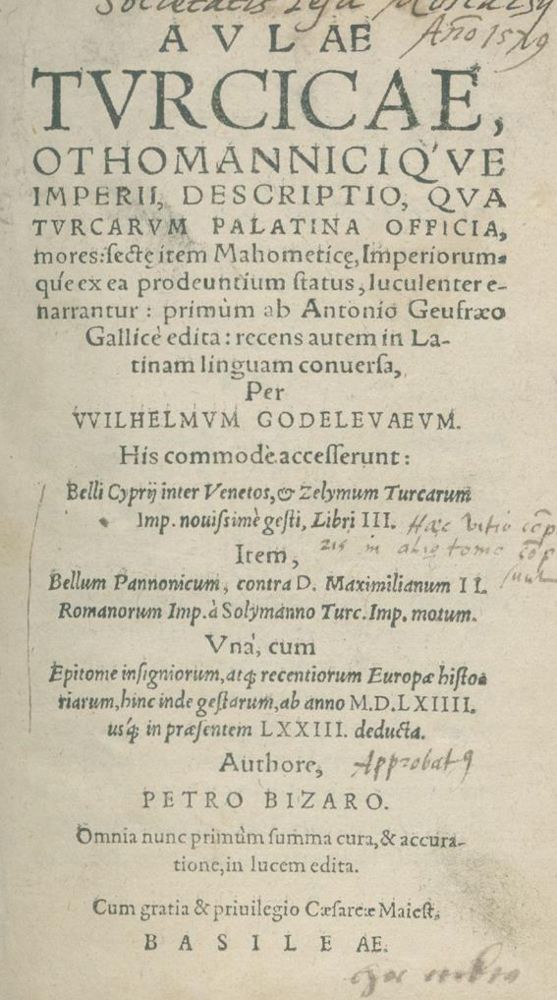 Societatis Jesu
Año 1579
AVLAE
TVRCICAE,
OTHOMANNICIQ'VE
IMPERII, DESCRIPTIO, QVA
TVRCARVM PALATINA OFFICIA,
mores: sectę item Mahometicę, Imperiorum-
q́ue ex ea prodeuntium status, luculenter e-
narrantur: primùm ab Antonio Geufræo
Gallicè edita: recens autem in La-
tinam linguam conuersa,
Per
VVILHELMVM GODELEVAEVM.
His commodè accesserunt:
Belli Cyprij inter Venetos, & Zelymum Turcarum
Imp. nouissimè gesti, Libri III.
Hæc
in alio tomo
Item,
Bellum Pannonicum, contra D. Maximilianum II.
Romanorum Imp. à Solymanno Turc. Imp. motum.
Vnà, cum
Epitome insigniorum, atq́; recentiorum Europæ histo-
riarum, hinc inde gestarum, ab anno M.D.LXIIII.
usq́; in præsentem LXXIII. deducta.
Authore,
Approbat
PETRO BIZARO.
Omnia nunc primùm summa cura, & accura-
tione, in lucem edita.
Cum gratia & priuilegio Cæsareæ Maiest.
BASILEAE.